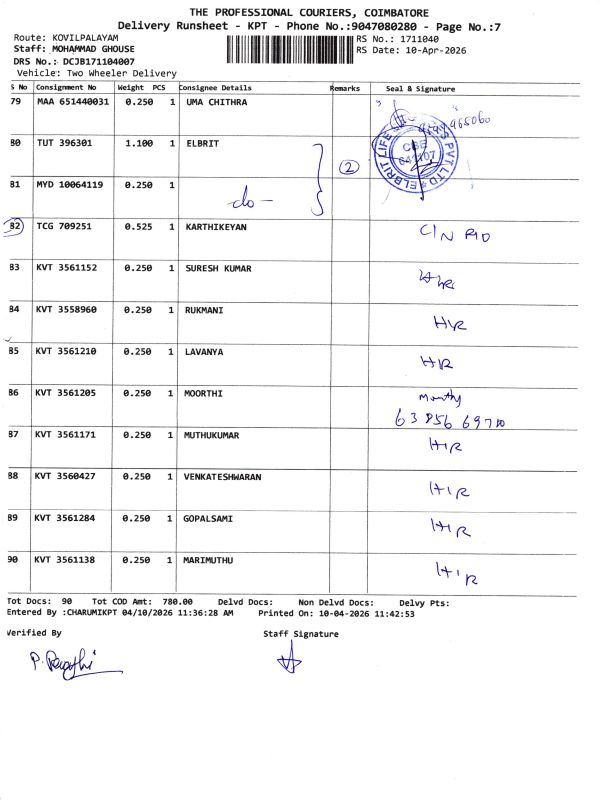 THE PROFESSIONAL COURIERS, COIMBATORE
Delivery Runsheet - KPT - Phone No.:9047080280 - Page No.:7
Route: KOVILPALAYAM
RS No.: 1711040
Staff: MOHAMMAD GHOUSE
RS Date: 10-Apr-2026
DRS No.: DCJB171104007
Vehicle: Two Wheeler Delivery
S No Consignment No Weight PCS Consignee Details Remarks Seal & Signature
79 MAA 651440031 0.250 1 UMA CHITHRA
80 TUT 396301 1.100 1 ELBRIT
2
CBE
641107
81 MYD 10064119 0.250 1
-do-
82 TCG 709251 0.525 1 KARTHIKEYAN
83 KVT 3561152 0.250 1 SURESH KUMAR
84 KVT 3558960 0.250 1 RUKMANI
85 KVT 3561210 0.250 1 LAVANYA
86 KVT 3561205 0.250 1 MOORTHI
87 KVT 3561171 0.250 1 MUTHUKUMAR
88 KVT 3560427 0.250 1 VENKATESHWARAN
89 KVT 3561284 0.250 1 GOPALSAMI
90 KVT 3561138 0.250 1 MARIMUTHU
Tot Docs: 90 Tot COD Amt: 780.00 Delvd Docs: Non Delvd Docs: Delvy Pts:
Entered By :CHARUMIKPT 04/10/2026 11:36:28 AM Printed On: 10-04-2026 11:42:53
Verified By Staff Signature